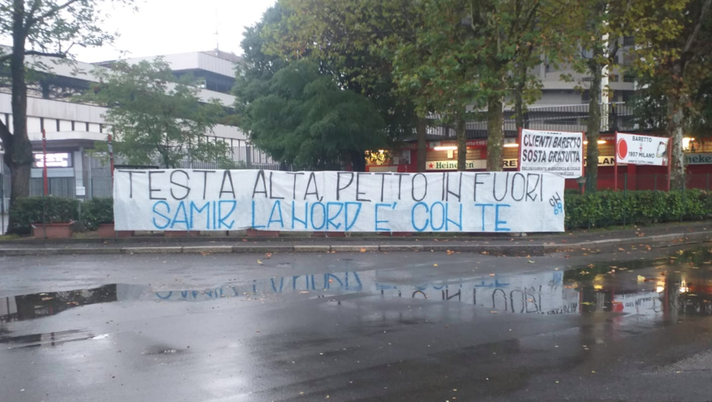 TESTA ALTA, PETTO IN FUORI
SAMIR, LA NORD E' CON TE
CLIENTI BARETTO
SOSTA GRATUITA
BARETTO
1957 MILANO
Heineken